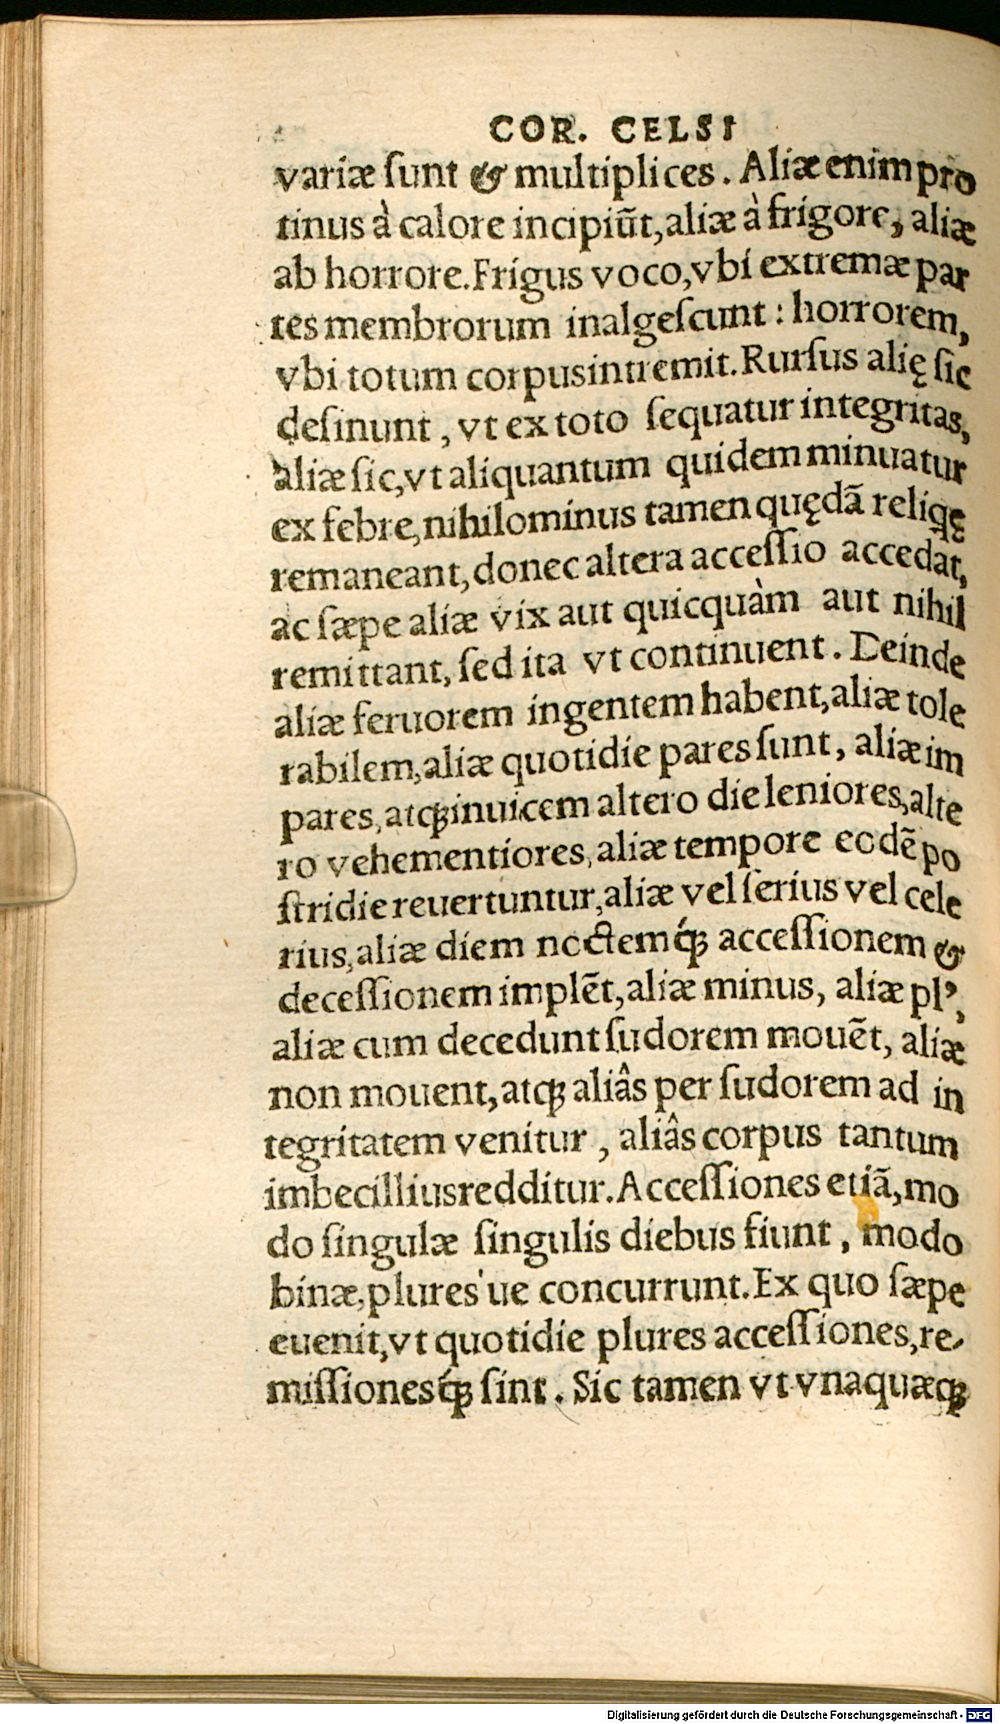 COR. CELSI
variæ ſunt & multiplices. Aliæ enim pro
tinus à calore incipiūt, aliæ à frigore, aliæ
ab horrore. Frigus voco, vbi extremæ par
tes membrorum inalgeſcunt : horrorem,
vbi totum corpus intremit. Rurſus alię ſic
deſinunt, vt ex toto ſequatur integritas,
aliæ ſic, vt aliquantum quidem minuatur
ex febre, nihilominus tamen quędā reliq̨ę
remaneant, donec altera acceſſio accedat,
ac ſæpe aliæ vix aut quicquàm aut nihil
remittant, ſed ita vt continuent. Deinde
aliæ feruorem ingentem habent, aliæ tole
rabilem, aliæ quotidie pares ſunt, aliæ im
pares, atq; inuicem altero die leniores, alte
ro vehementiores, aliæ tempore eodē po
ſtridie reuertuntur, aliæ vel ſerius vel cele
rius, aliæ diem noctemq́; acceſſionem &
deceſſionem implēt, aliæ minus, aliæ plꝰ,
aliæ cum decedunt ſudorem mouēt, aliæ
non mouent, atq; aliâs per ſudorem ad in
tegritatem venitur, aliâs corpus tantum
imbecillius redditur. Acceſſiones etiā, mo
do ſingulæ ſingulis diebus fiunt, modo
binæ, plures'ue concurrunt. Ex quo ſæpe
euenit, vt quotidie plures acceſſiones, re-
miſſionesq́; ſint. Sic tamen vt vnaquæq;
Digitalisierung gefördert durch die Deutsche Forschungsgemeinschaft - DFG